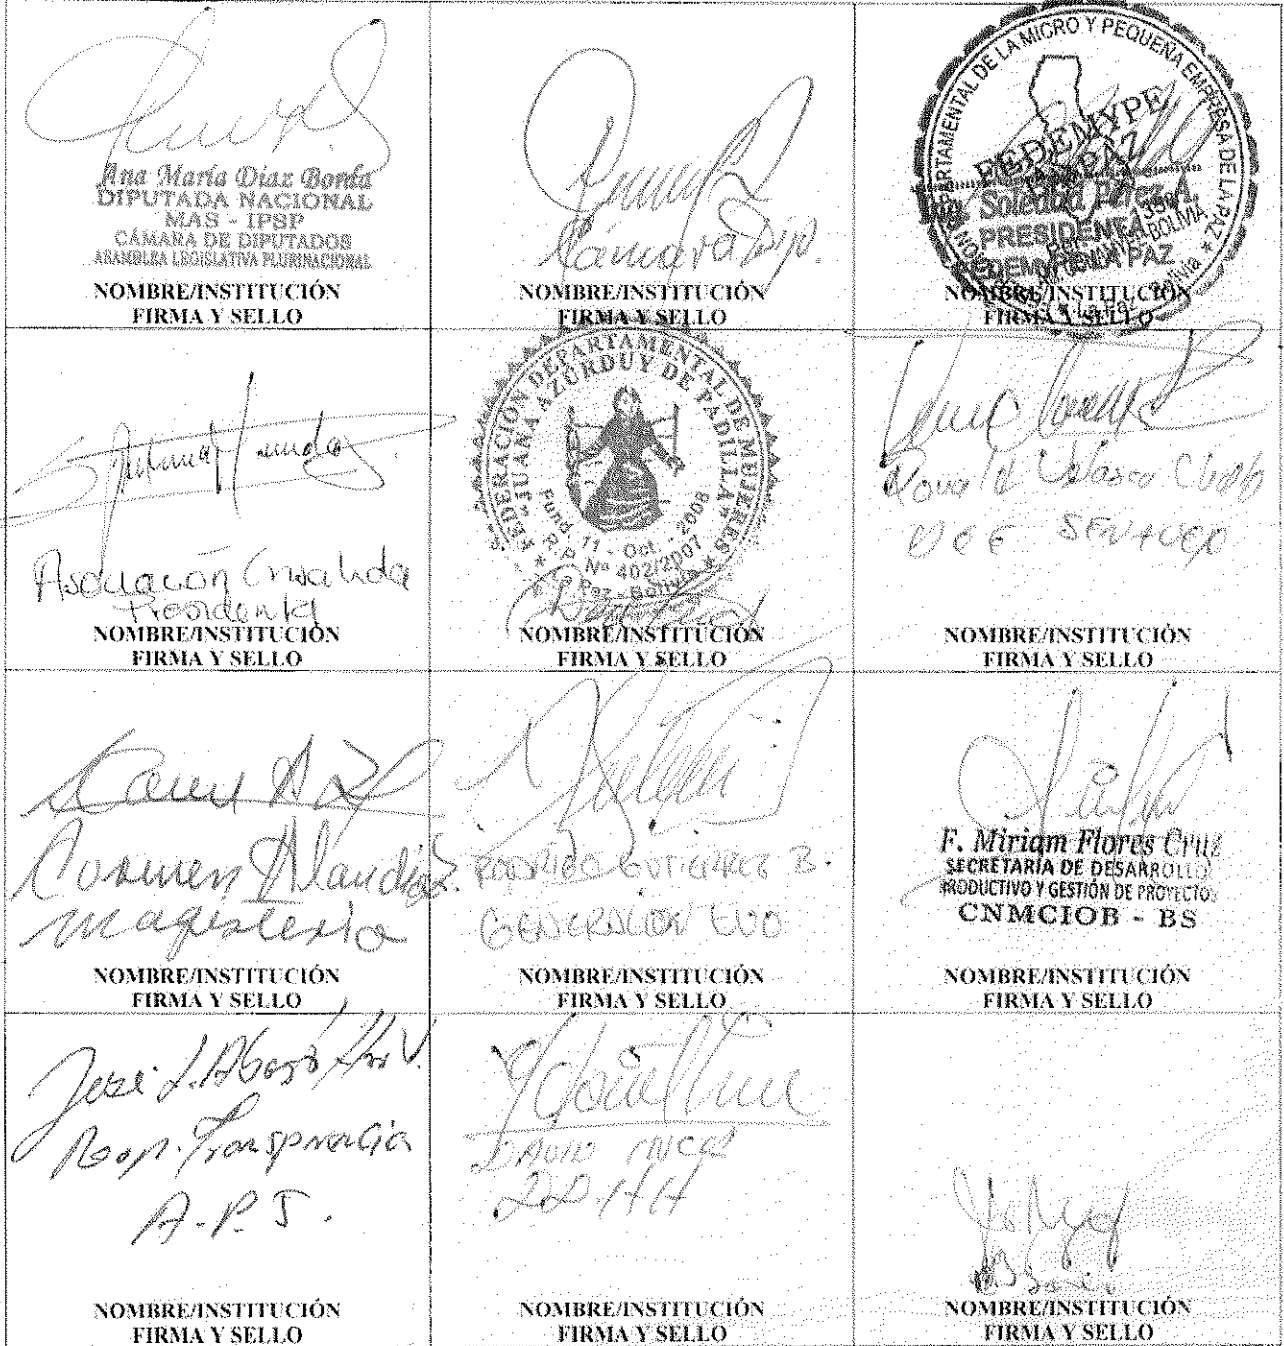 Ana María Diaz Borda
DIPUTADA NACIONAL
MAS - IPSP
CÁMARA DE DIPUTADOS
ASAMBLEA LEGISLATIVA PLURINACIONAL
NOMBRE/INSTITUCIÓN
FIRMA Y SELLO
Cámara Dip.
NOMBRE/INSTITUCIÓN
FIRMA Y SELLO
DEPARTAMENTAL DE LA MICRO Y PEQUEÑA EMPRESA DE LA PAZ
FEDEMYPE
LA PAZ
Soledad Pérez A.
PRESIDENTA
FEDEMYPE LA PAZ
BOLIVIA
La Paz - Bolivia
NOMBRE/INSTITUCIÓN
FIRMA Y SELLO
Asociación
Presidenta
NOMBRE/INSTITUCIÓN
FIRMA Y SELLO
FEDERACIÓN DEPARTAMENTAL DE MUJERES
"JUANA AZURDUY DE PADILLA"
Fund. 11 - Oct. - 2008
R.P. Nº 402/2007
La Paz - Bolivia
NOMBRE/INSTITUCIÓN
FIRMA Y SELLO
Velasco
NOMBRE/INSTITUCIÓN
FIRMA Y SELLO
Carmen
magisterio
NOMBRE/INSTITUCIÓN
FIRMA Y SELLO
RODRIGO GUTIERREZ B.
GENERACION EVO
NOMBRE/INSTITUCIÓN
FIRMA Y SELLO
F. Miriam Flores Cruz
SECRETARÍA DE DESARROLLO
PRODUCTIVO Y GESTIÓN DE PROYECTOS
CNMCIOB - BS
NOMBRE/INSTITUCIÓN
FIRMA Y SELLO
José L.
Resp. Transparencia
A.P.S.
NOMBRE/INSTITUCIÓN
FIRMA Y SELLO
DAVID INCA
DD.HH
NOMBRE/INSTITUCIÓN
FIRMA Y SELLO
NOMBRE/INSTITUCIÓN
FIRMA Y SELLO